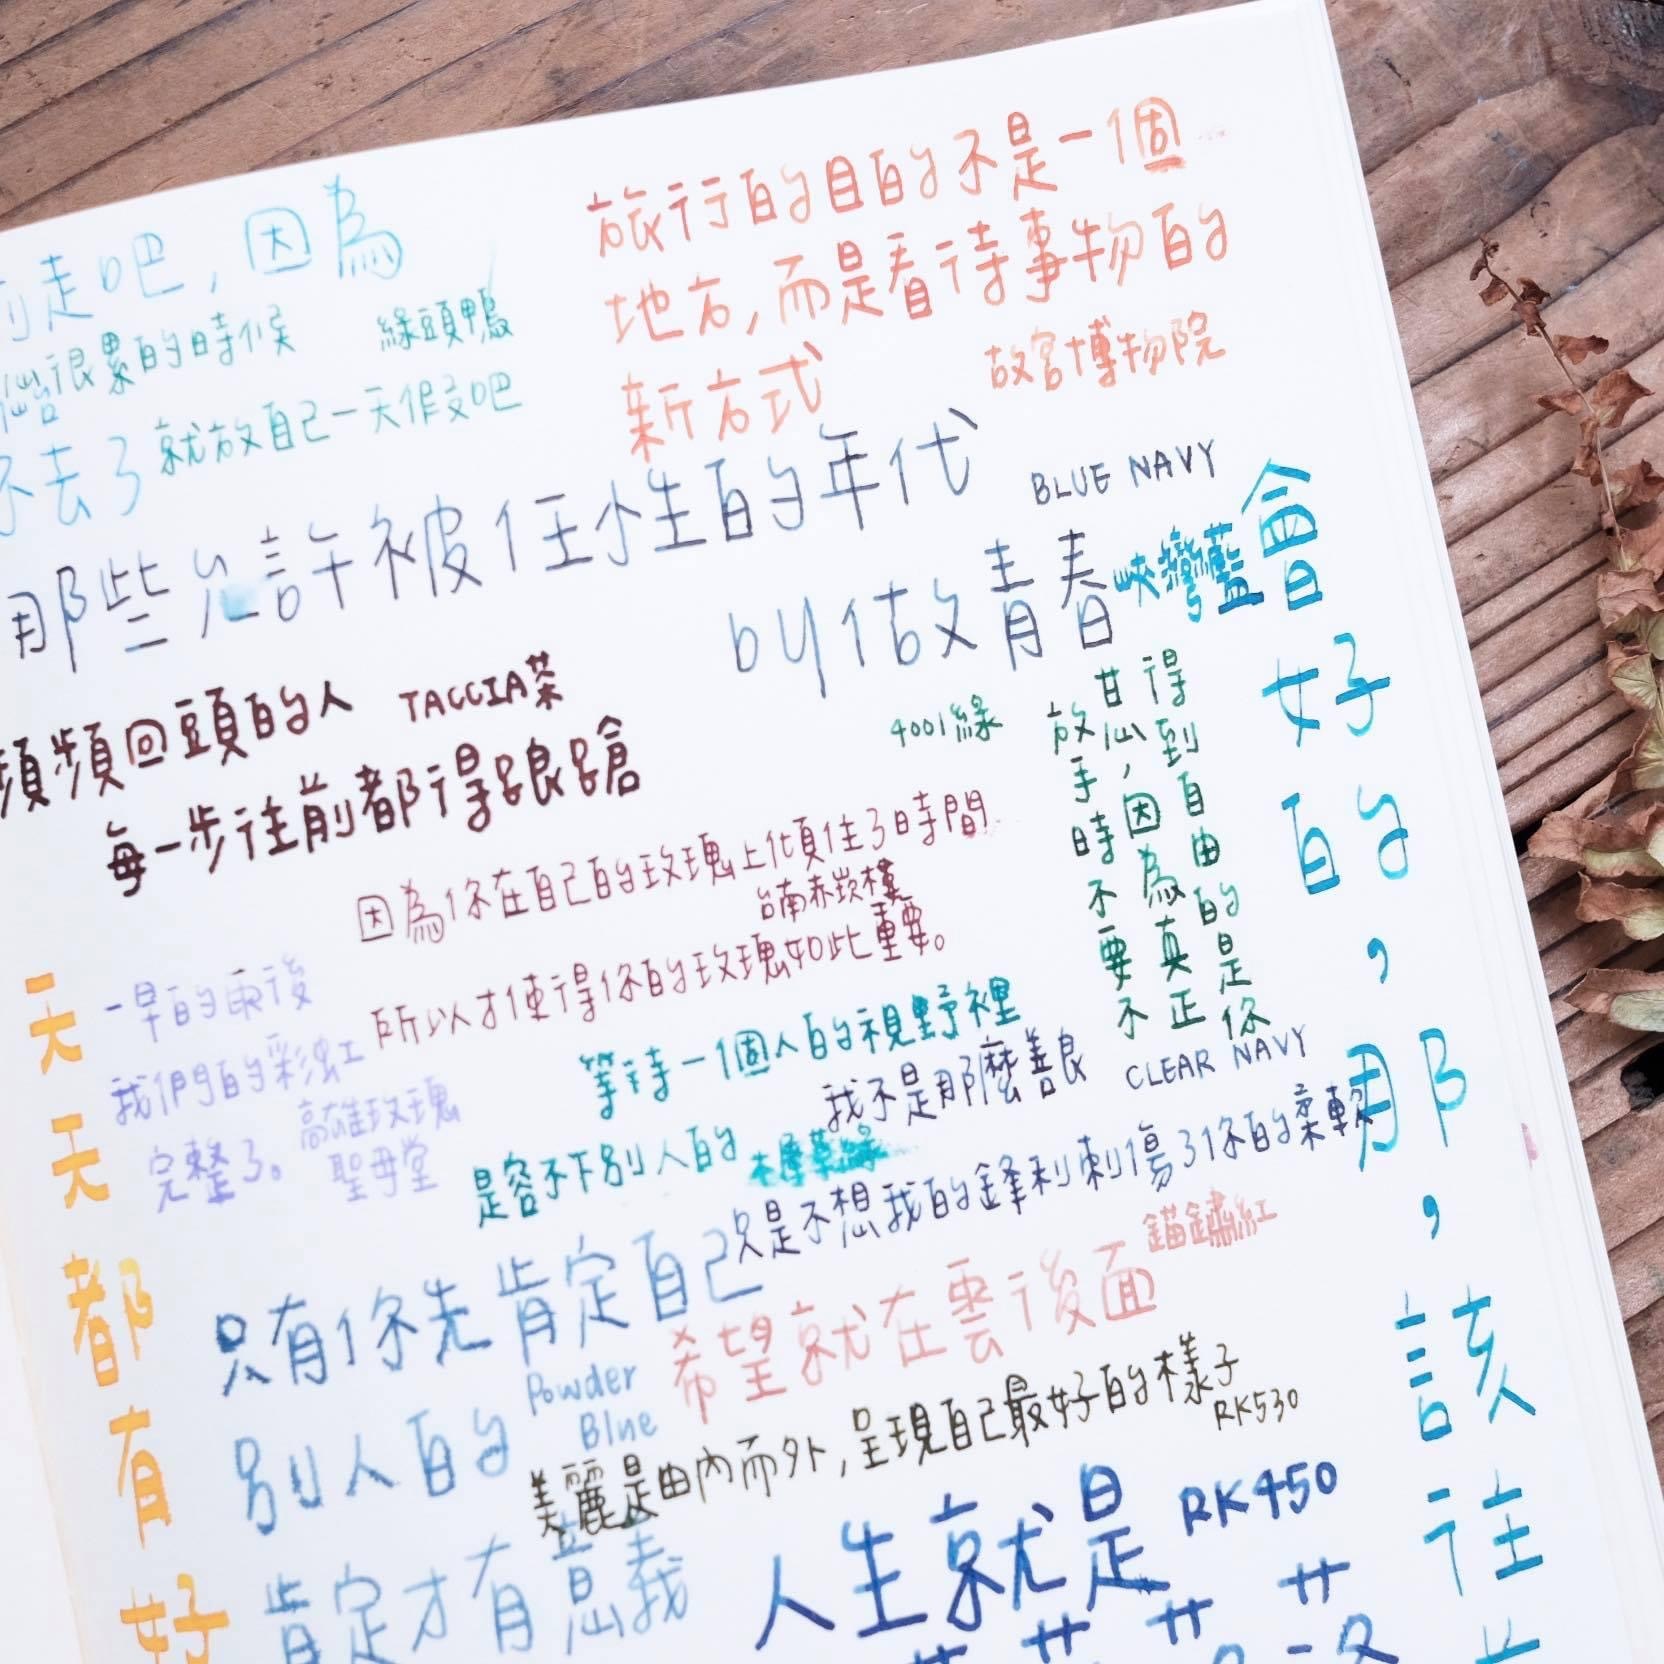 走吧,因為
很累的時候
綠頭鴨
就放自己一天假吧
不去了
旅行的目的不是一個
地方,而是看待事物的
新方式
故宮博物院
那些允許被任性的年代
BLUE NAVY
叫做青春
峽灣藍
頻頻回頭的人
TACCIA茶
每一步往前都得踉蹌
4001綠
得到自由的是你
甘心,因為真正
放手時不要不
因為你在自己的玫瑰上傾住了時間
台南赤崁樓
所以才使得你的玫瑰如此重要。
一早的雨後
我們的彩虹
完整了。
高雄玫瑰
聖母堂
等待一個人的視野裡
是容不下別人的
我不是那麼善良
CLEAR NAVY
只是不想我的鋒利刺傷了你的柔軟
只有你先肯定自己
別人的
肯定才有意義
Powder
Blue
希望就在雲後面
錨鏽紅
美麗是由內而外,呈現自己最好的樣子
RK530
人生就是
RK450
天天都有好
會好的,那,該往